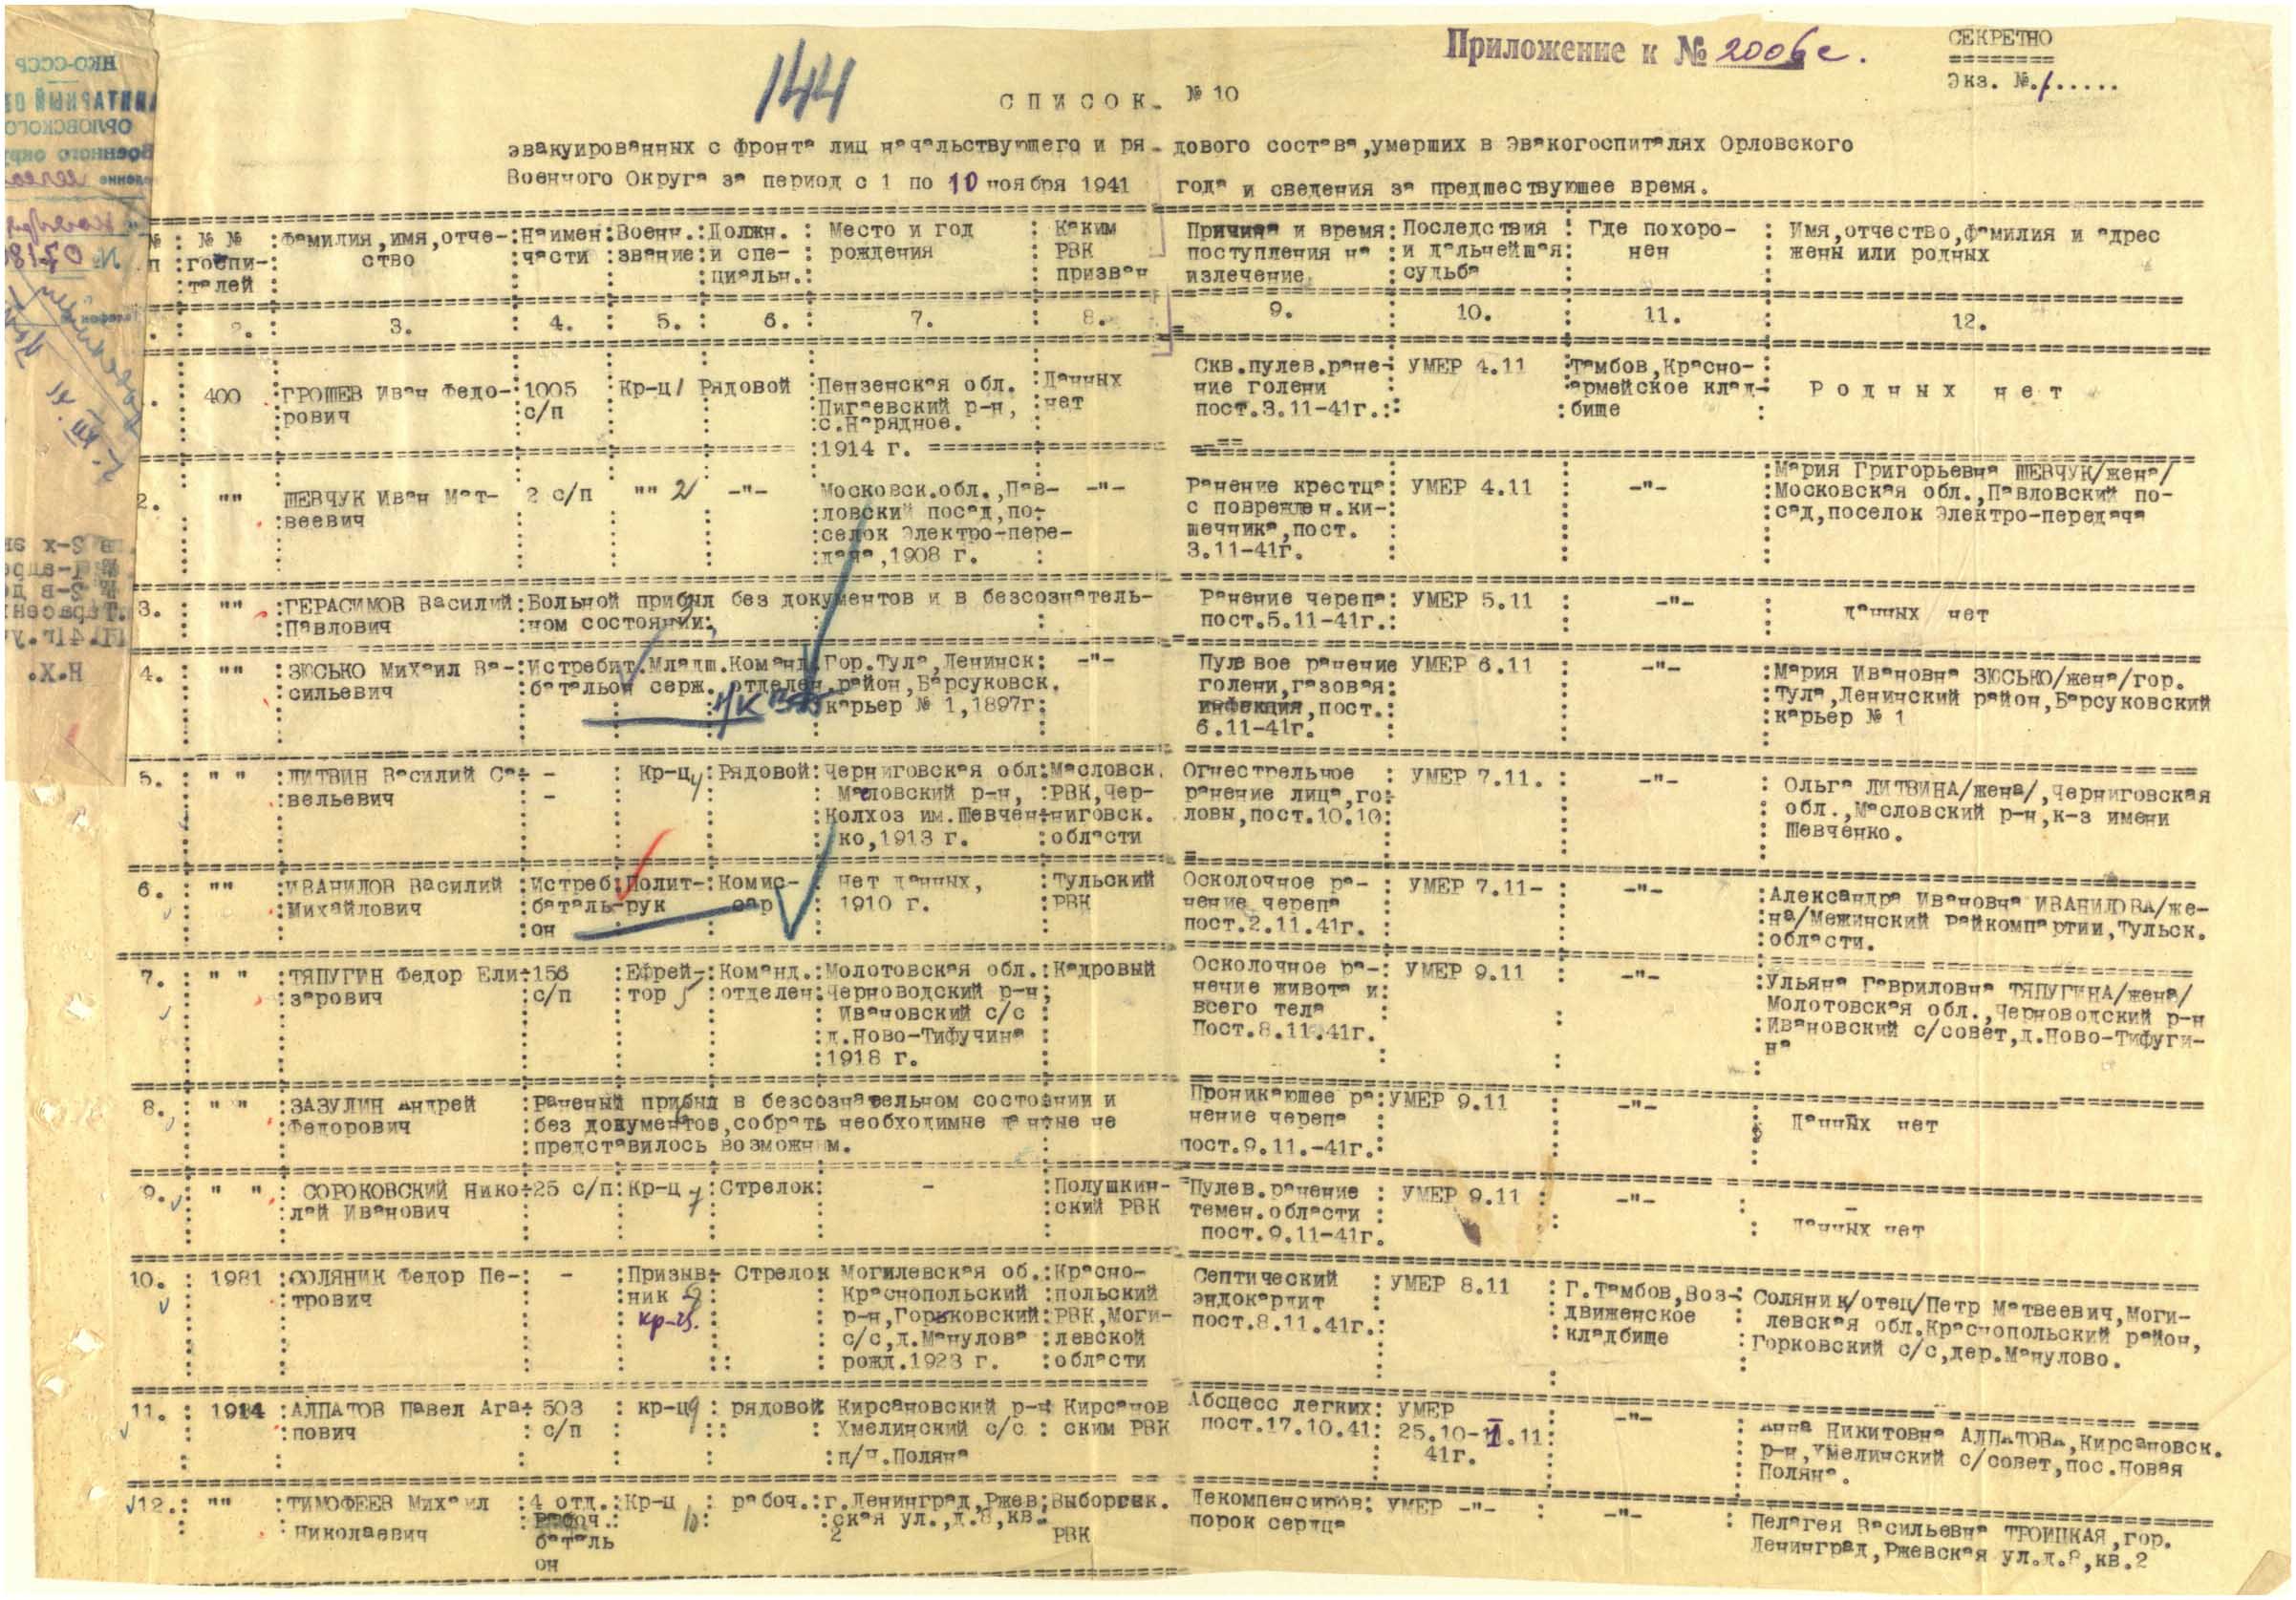 Приложение к № 2006с.
СЕКРЕТНО
Экз. №.1.....
144
СПИСОК № 10
эвакуированных с фронта лиц начальствующего и ря- дового состава,умерших в Эвакогоспиталях Орловского
Военного Округа за период с 1 по 10 ноября 1941 года и сведения за предшествующее время.
№ п : №№ госпи- талей : Фамилия,имя,отче- ство : Наимен части : Военн. звание : Должн. и спе- циальн. : Место и год рождения : Каким РВК призван
Причина и время поступления на излечение : Последствия и дальнейшая судьба : Где похоро- нен : Имя,отчество,фамилия и адрес жены или родных
2. 3. 4. 5. 6. 7. 8. 9. 10. 11. 12.
400 :ГРОШЕВ Иван Федо-:1005 Кр-ц Рядовой :Пензенская обл. :Данных
:рович :с/п :Пигаевский р-н, :нет
:с.Нарядное.
:1914 г.
Скв.пулев.ране-: УМЕР 4.11 :Тамбов,Красно-: Родных нет
ние голени :армейское клад-:
пост.3.11-41г.: :бище
2. "" ШЕВЧУК Иван Мат- 2 с/п "" 2 -"- Московск.обл.,Пав- -"-
:веевич :ловский посад,по-
:селок Электро-пере-
:дача,1908 г.
Ранение крестца: УМЕР 4.11 -"- :Мария Григорьевна ШЕВЧУК/жена/
с поврежден.ки-: :Московская обл.,Павловский по-
шечника,пост. :сад,поселок Электро-передача
3.11-41г.
3. "" :ГЕРАСИМОВ Василий:Больной прибыл без документов и в безсознатель-
:Павлович :ном состоянии:
Ранение черепа: УМЕР 5.11 -"- данных нет
пост.5.11-41г.:
4. "" :ЗЮСЬКО Михаил Ва-:Истребит.Младш.Команд.Гор.Тула,Ленинск: -"-
:сильевич :батальон серж. отделен.район,Барсуковск.
карьер № 1,1897г:
Пулевое ранение УМЕР 6.11 -"- :Мария Ивановна ЗЮСЬКО/жена/гор.
голени,газовая: :Тула,Ленинский район,Барсуковский
инфекция,пост.: :карьер № 1
6.11-41г.
5. " " :ЛИТВИН Василий Са-: - : Кр-ц : Рядовой:Черниговская обл:Масловск.
:вельевич - : Масловский р-н, :РВК,Чер-
:Колхоз им.Шевчен-:ниговск.
:ко,1913 г. :области
Огнестрельное : УМЕР 7.11. -"- : Ольга ЛИТВИНА/жена/,Черниговская
ранение лица,го-: : обл.,Масловский р-н,к-з имени
ловы,пост.10.10: : Шевченко.
6. "" :ИВАНИЛОВ Василий :Истреб:Полит-: Комис- : нет данных, :Тульский
:Михайлович :баталь-рук сар : 1910 г. :РВК
:он
Осколочное ра- : УМЕР 7.11- -"- :Александра Ивановна ИВАНИЛОВА/же-
нение черепа :на/Межинский Райкомпартии,Тульск.
пост.2.11.41г. :области.
7. " " :ТЯПУГИН Федор Ели-:156 :Ефрей-: Команд.:Молотовская обл.:Кадровый
:зарович :с/п :тор 5 : отделен:Черноводский р-н:
: Ивановский с/с :
:д.Ново-Тифучина
:1918 г.
Осколочное ра-: УМЕР 9.11 -"- :Ульяна Гавриловна ТЯПУГИНА/жена/
нение живота и: Молотовская обл.,Черноводский р-н
всего тела :Ивановский с/совет,д.Ново-Тифуги-
Пост.8.11.41г. на
8. " " :ЗАЗУЛИН Андрей :Раненый прибыл в безсознательном состоянии и
:Федорович :без документов,собрать необходимые данные не
:представилось возможным.
Проникающее ра:УМЕР 9.11 -"- Данных нет
нение черепа
пост.9.11.-41г.:
9. " " : СОРОКОВСКИЙ Нико-:25 с/п:Кр-ц 7 :Стрелок: - :Полушкин-
:лай Иванович :ский РВК
Пулев.ранение : УМЕР 9.11 -"- -
темен.области : : данных нет
пост.9.11-41г.
10. : 1981 :СОЛЯНИК Федор Пе-: - :Призыв- Стрелок Могилевская об.:Красно-
:трович :ник : Краснопольский :польский
кр-ц. р-н,Горьковский:РВК,Моги-
с/с,д.Манулова :левской
рожд.1923 г. :области
Септический : УМЕР 8.11 : Г.Тамбов,Воз-: Соляник/отец/Петр Матвеевич,Моги-
эндокардит : движенское левская обл.Краснопольский район,
пост.8.11.41г.: : кладбище :Горковский с/с,дер.Манулово.
11. : 1914 :АЛПАТОВ Павел Ага-: 503 : кр-ц9 : рядовой: Кирсановский р-н Кирсанов
:пович : с/п : Хмелинский с/с : ским РВК
:п/н.Поляна
Абсцесс легких: УМЕР -"- Анна Никитовна АЛПАТОВА,Кирсановск.
пост.17.10.41: 25.10-1.11 : р-н,Хмелинский с/совет,пос.Новая
41г. : Поляна.
12.: "" :ТИМОФЕЕВ Михаил :4 отд.:Кр-ц : рабоч.:г.Ленинград,Ржев:Выборгск.
: Николаевич рабоч. 10 :ская ул.,д.8,кв.
баталь 2 РВК
он
Декомпенсиров: УМЕР -"- -"- : Пелагея Васильевна ТРОИЦКАЯ,гор.
порок сердца Ленинград,Ржевская ул.д.8,кв.2